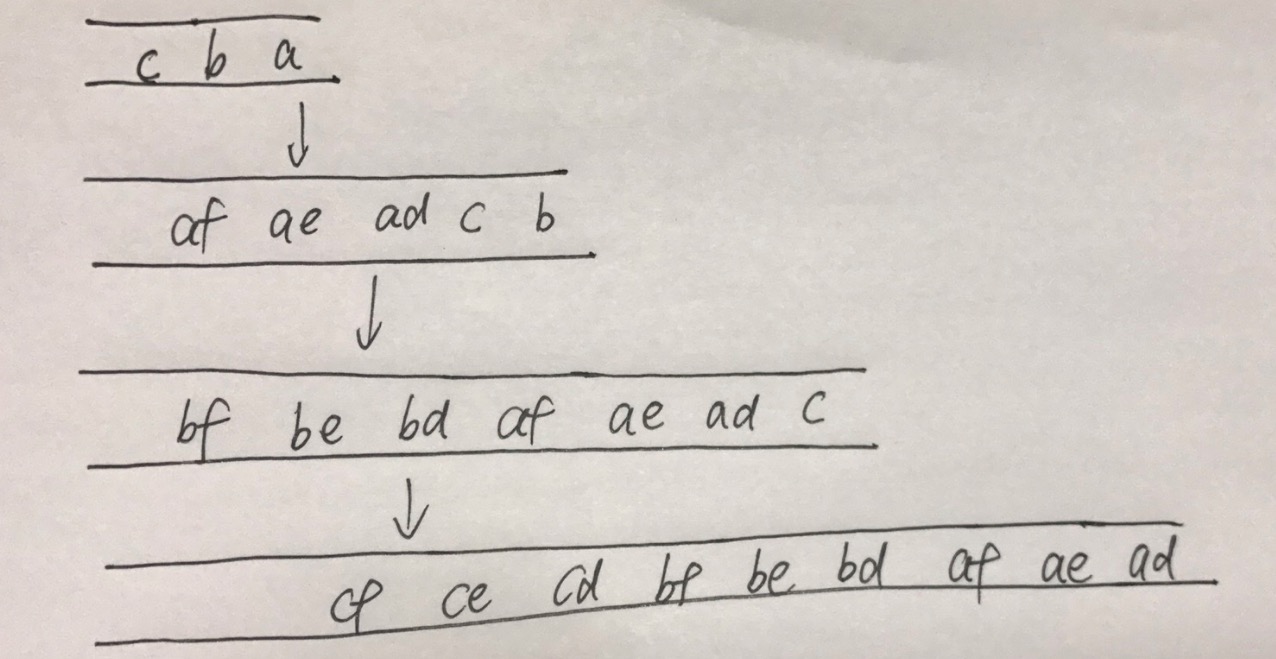 c b a
af ae ad c b
bf be bd af ae ad c
cf ce cd bf be bd af ae ad